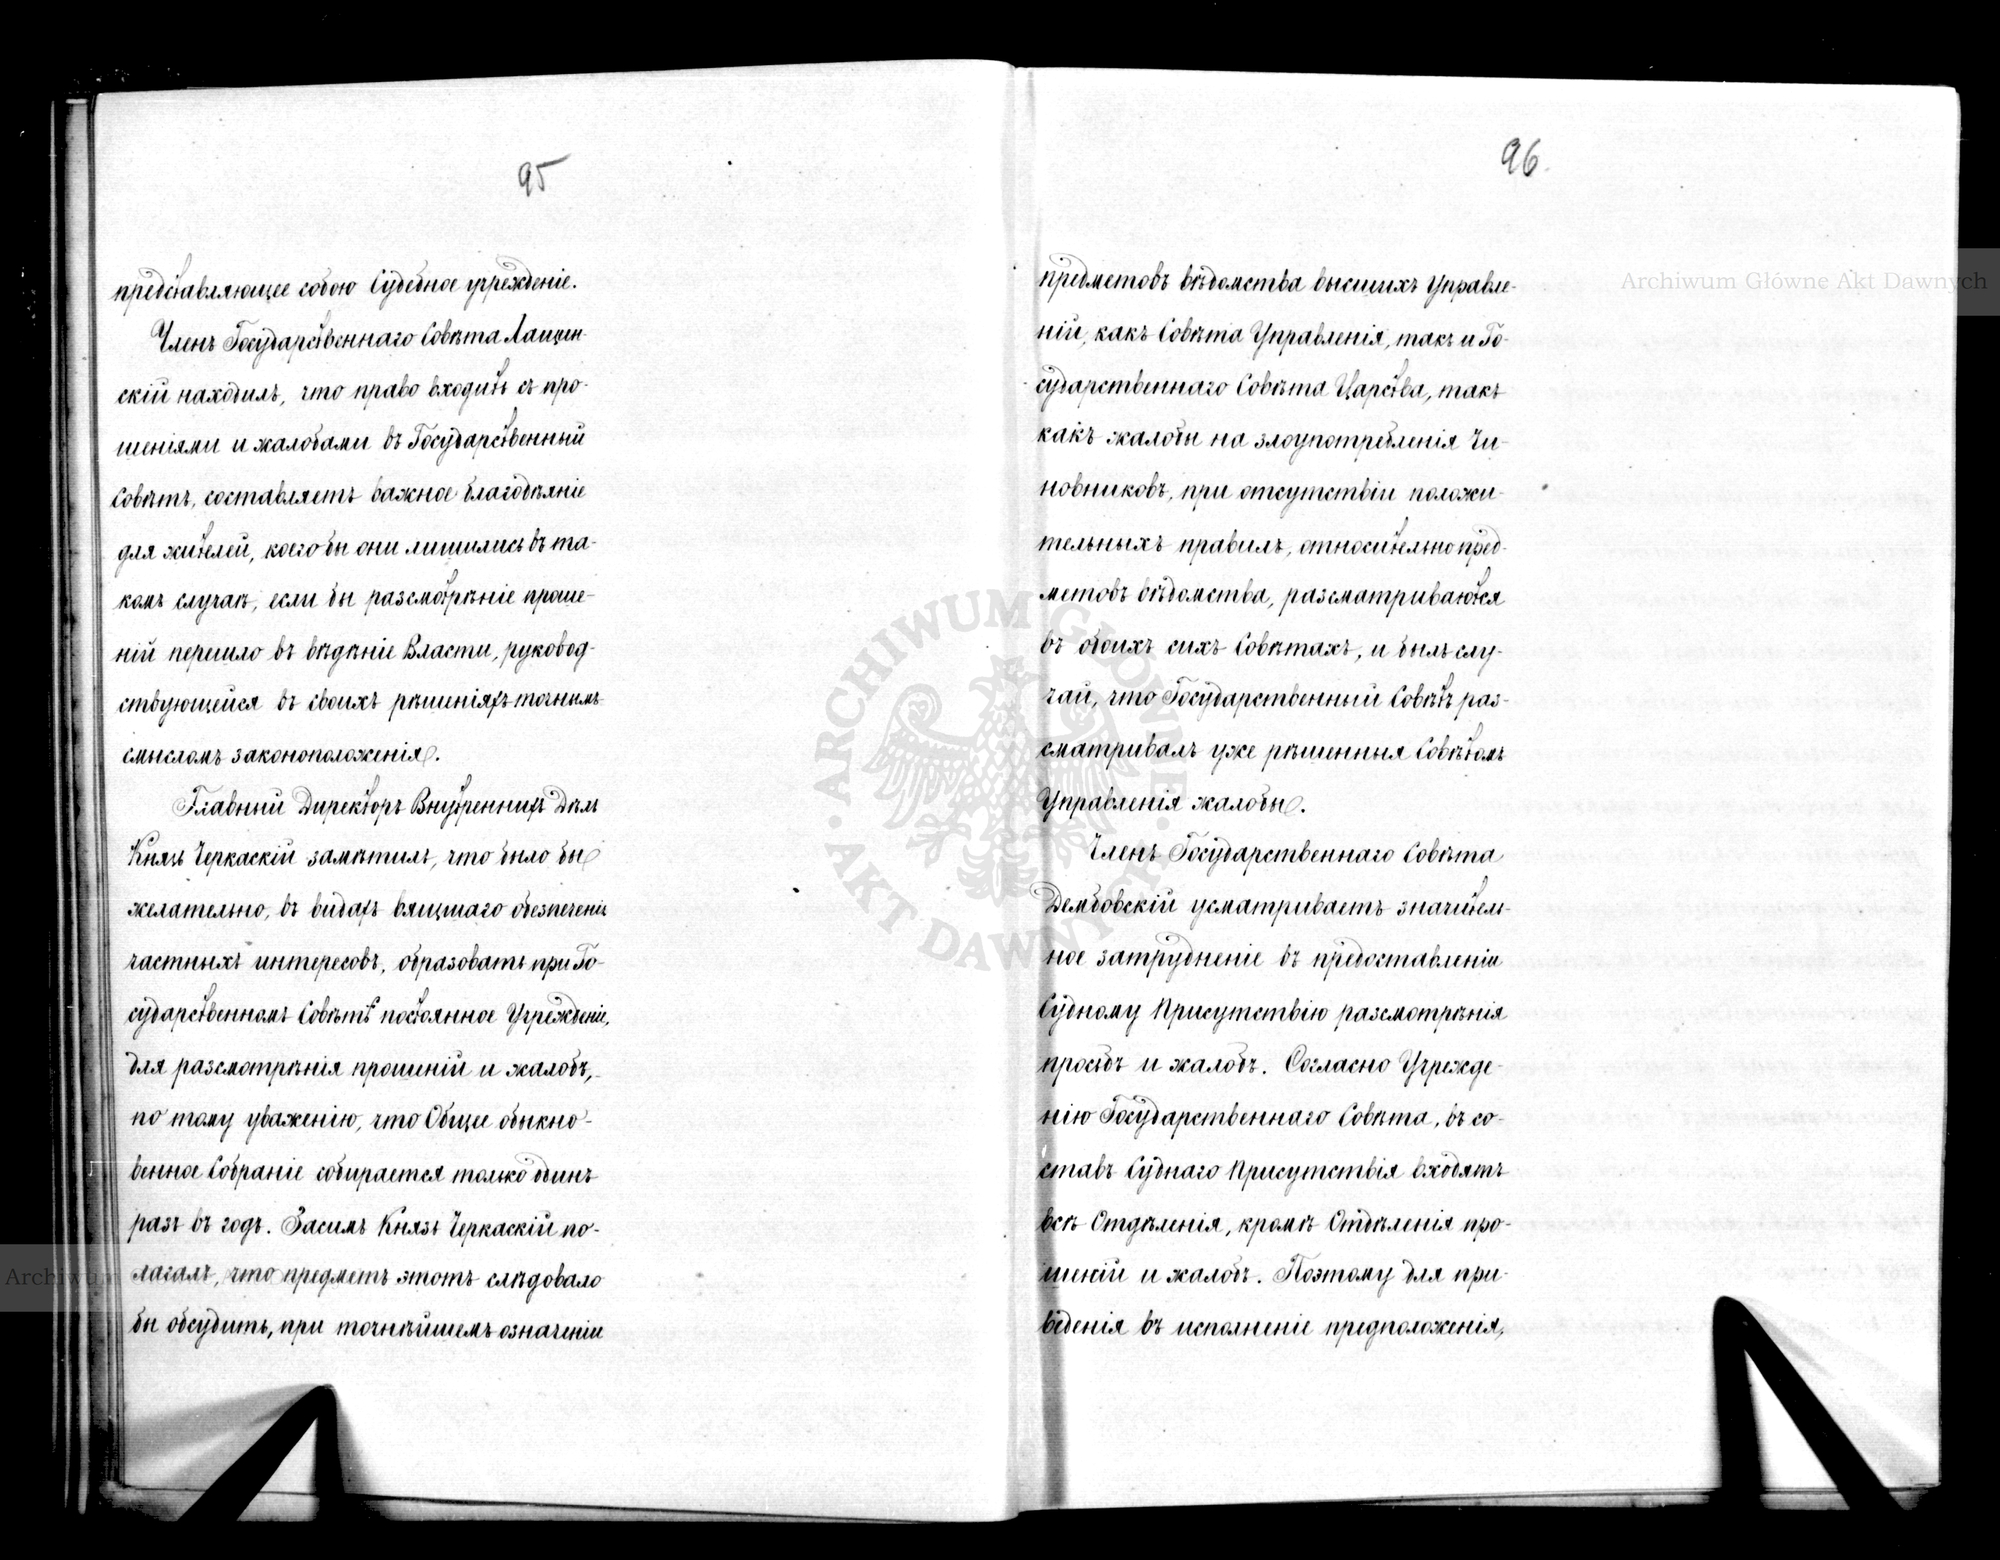 95
представляющее собою Судебное учрежденіе.
Членъ Государственнаго Совѣта Лащин-
скій находилъ, что право входить съ про-
шеніями и жалобами въ Государственный
Совѣтъ, составляетъ важное благодѣяніе
для жителей, коего бы они лишились въ та-
комъ случаѣ, если бы разсмотрѣніе проше-
ній перешло въ вѣдѣніе Власти, руковод-
ствующейся въ своихъ рѣшеніяхъ точнымъ
смысломъ законоположенія.
Главный Директоръ Внутреннихъ Дѣлъ
Князь Черкаскій замѣтилъ, что было бы
желательно, въ видахъ вящшаго обезпеченія
частныхъ интересовъ, образовать при Го-
сударственномъ Совѣтѣ постоянное Учрежденіе,
для разсмотрѣнія прошеній и жалобъ,
по тому уваженію, что Общее обыкно-
венное Собраніе собирается только одинъ
разъ въ годъ. Засимъ Князь Черкаскій по-
лагалъ, что предметъ этотъ слѣдовало
бы обсудить, при точнѣйшемъ означеніи
96.
предметовъ вѣдомства высшихъ Управле-
ній, какъ Совѣта Управленія, такъ и Го-
сударственнаго Совѣта Царства, такъ
какъ жалобы на злоупотребленія Чи-
новниковъ, при отсутствіи положи-
тельныхъ правилъ, относительно пред-
метовъ вѣдомства, разсматриваются
въ обоихъ сихъ Совѣтахъ, и былъ слу-
чай, что Государственный Совѣтъ раз-
сматривалъ уже рѣшенныя Совѣтомъ
Управленія жалобы.
Членъ Государственнаго Совѣта
Дембовскій усматриваетъ значитель-
ное затрудненіе въ предоставленіи
Судному Присутствію разсмотрѣнія
просьбъ и жалобъ. Согласно Учрежде-
нію Государственнаго Совѣта, въ со-
ставъ Суднаго Присутствія входятъ
всѣ Отдѣленія, кромѣ Отдѣленія про-
шеній и жалобъ. Поэтому для при-
веденія въ исполненіе предположенія,
Archiwum Główne Akt Dawnych
ARCHIWUM GŁÓWNE
AKT DAWNYCH
Archiwum